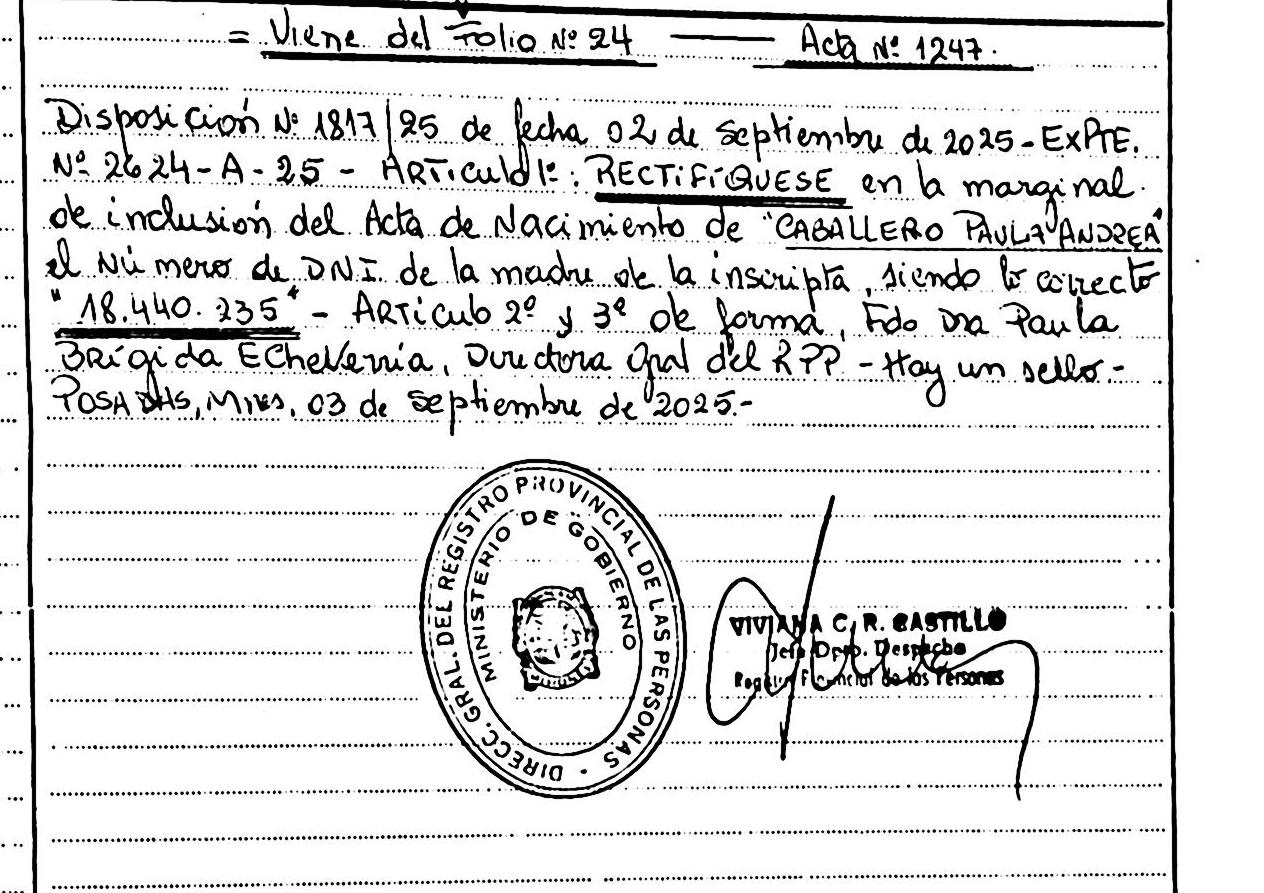 = Viene del Folio Nº 24 —— Acta Nº 1247.
Disposición Nº 1817/25 de fecha 02 de Septiembre de 2025 - EXPTE.
Nº 2624-A-25 - ARTículo 1º: RECTiFíQUESE en la marginal
de inclusión del Acta de Nacimiento de "CABALLERO PAULA ANDREA"
el Número de DNI de la madre de la inscripta, siendo lo correcto
"18.440.235" - ARTículo 2º y 3º de forma, Fdo Dra Paula
Brígida EcheVerría, Directora Gral del RPP - Hay un sello.-
POSADAS, Mnes, 03 de Septiembre de 2025.-
DIRECC. GRAL. DEL REGISTRO PROVINCIAL DE LAS PERSONAS
MINISTERIO DE GOBIERNO
VIVIANA C. R. CASTILLO
Jefa Dpto. Despacho
Registro Provincial de las Personas